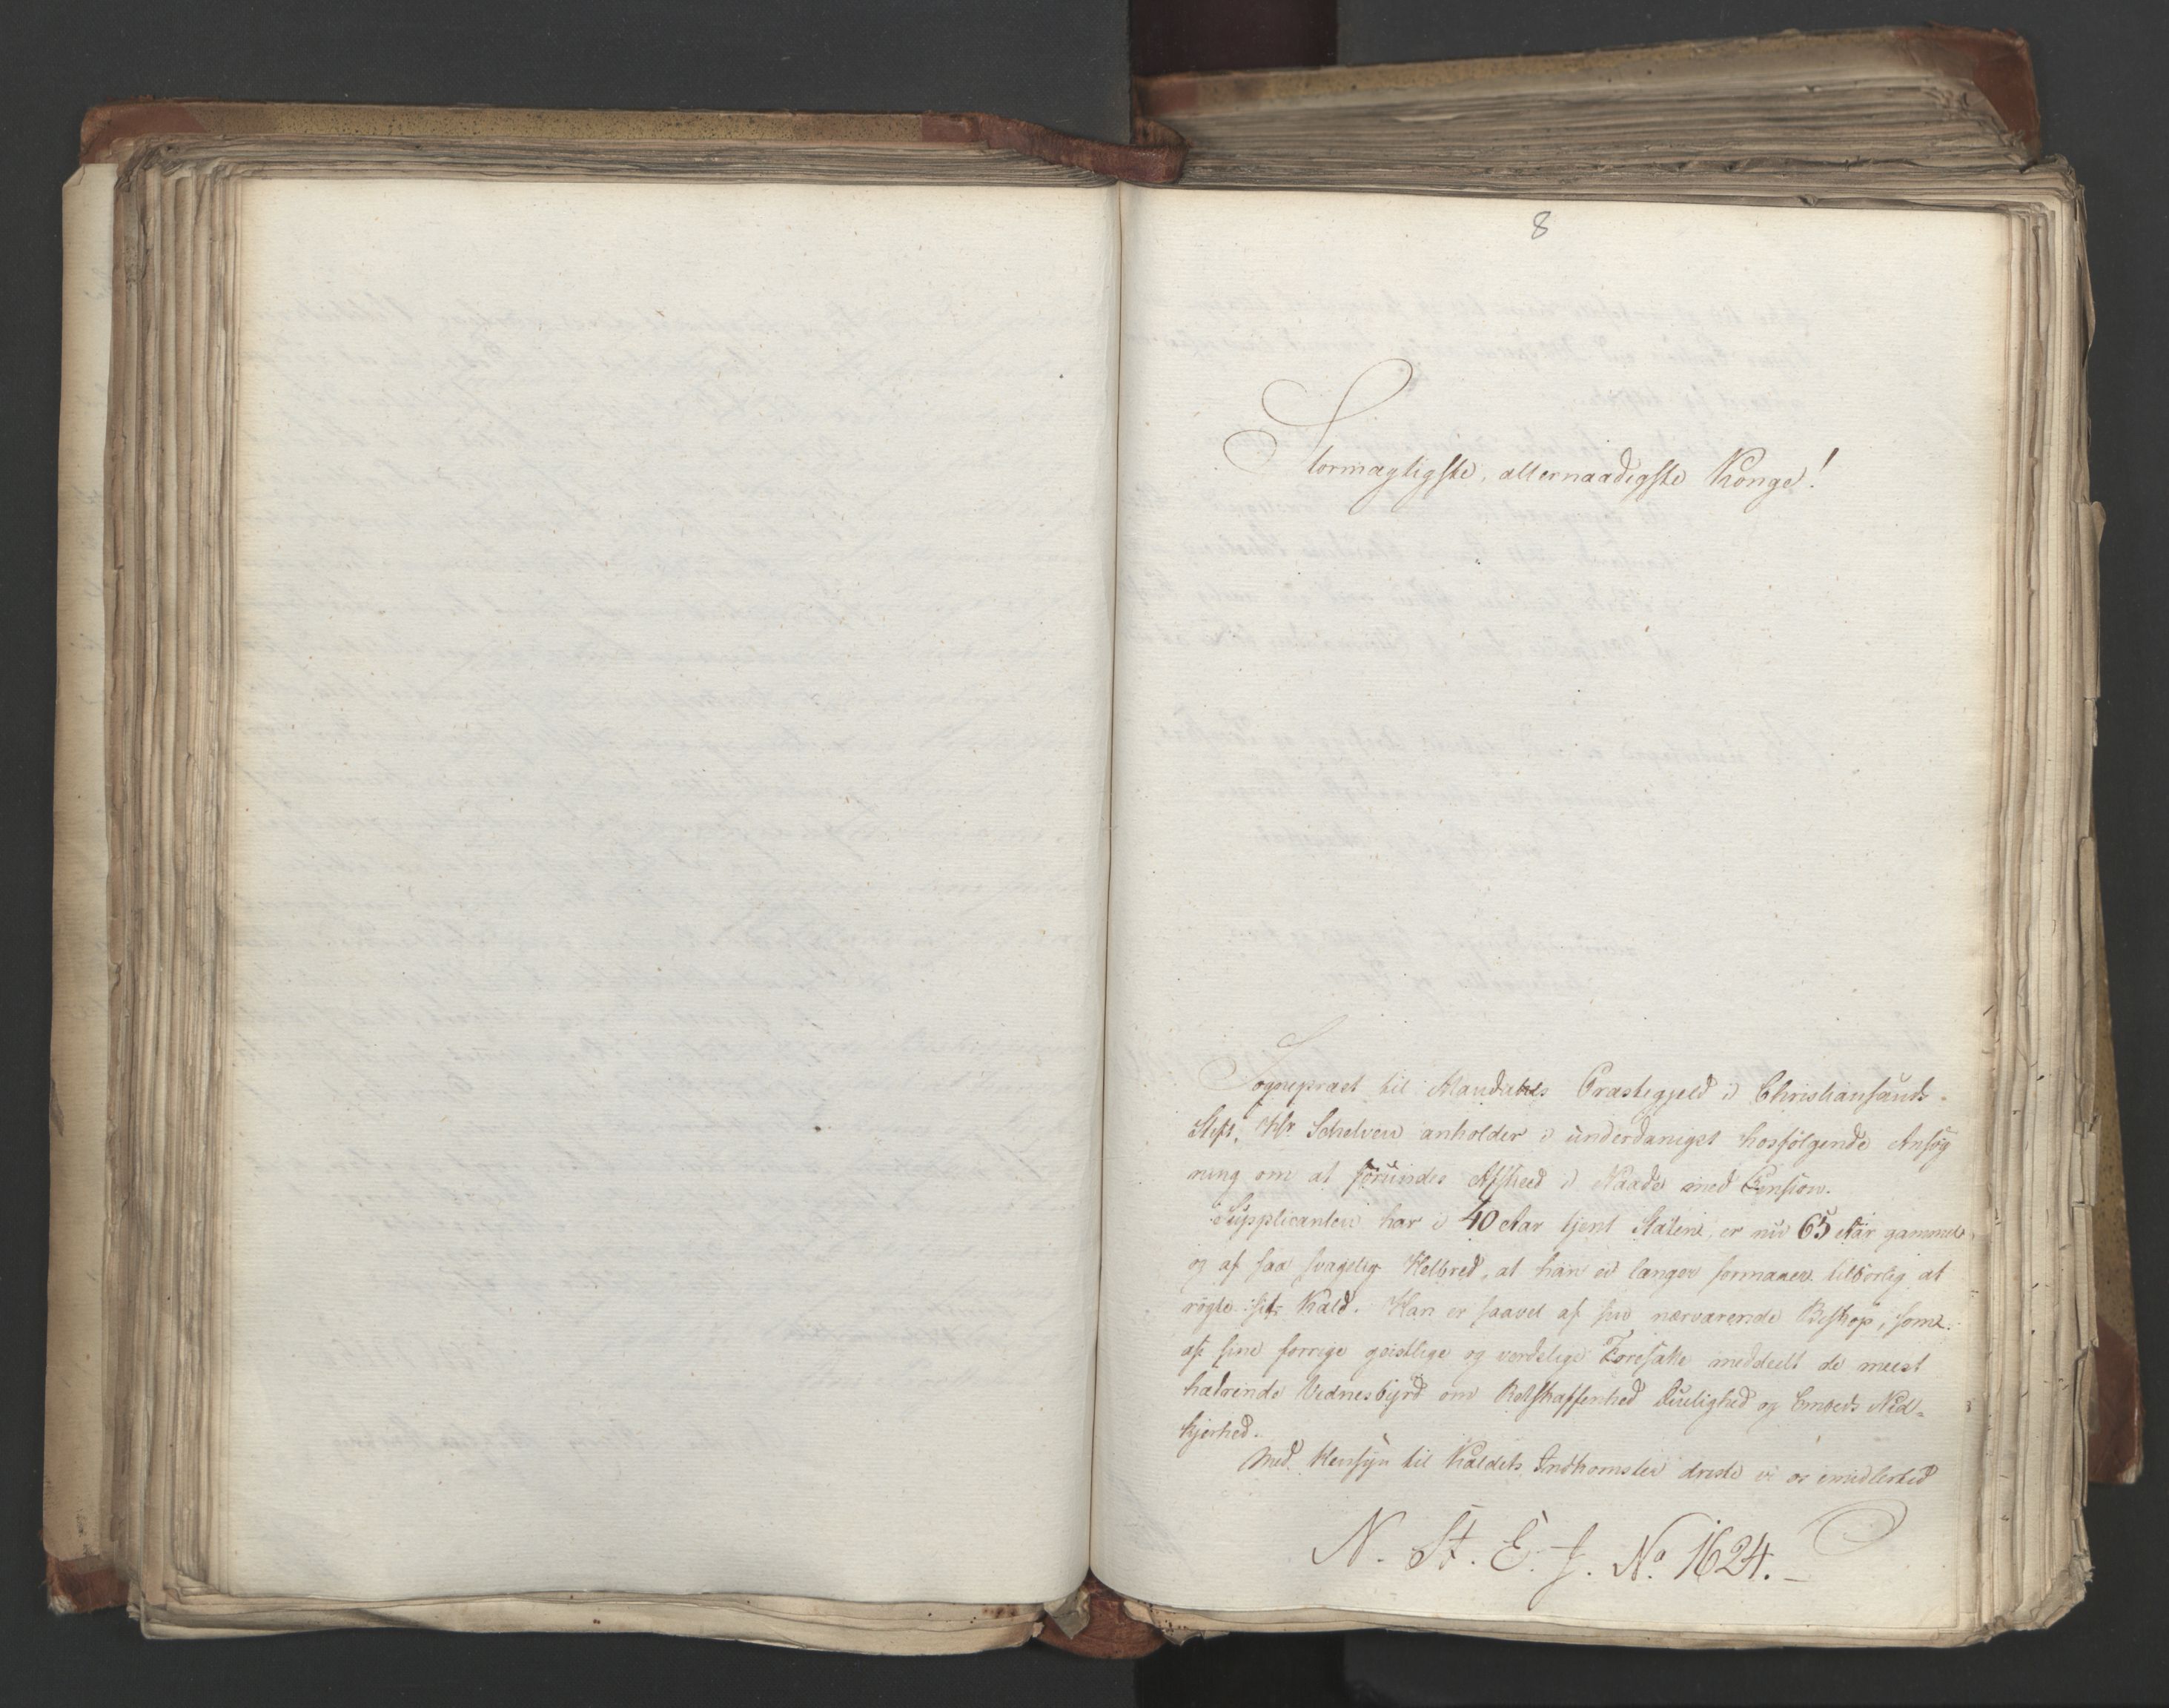 8
Stormægtigste, allernaadigste Konge!
Sognepræst til Mandahls Præstegjeld i Christiansands-
Stift, Hr. Schelven anholder i underdanigst hosfølgende Ansøg
ning om at forundes Afskeed i Naade med Pension.
Supplicanten har i 40 Aar tjent Staten, er nu 65 Aar gammel
og af saa svagelig Helbred, at han ei længer formaaer tilbørlig at
røgte sit Kald. Han er saavel af sin nærværende Biskop, som
af sine forrige geistlige og verdslige Foresatte meddeelt de meest
hædrende Vidnesbyrd om Retskaffenhed Duelighed og Embeds Nid-
kjerhed.
Med Hensyn til Kaldets Indkomster driste vi os imidlertid
N. St. E. J. No 1624.-